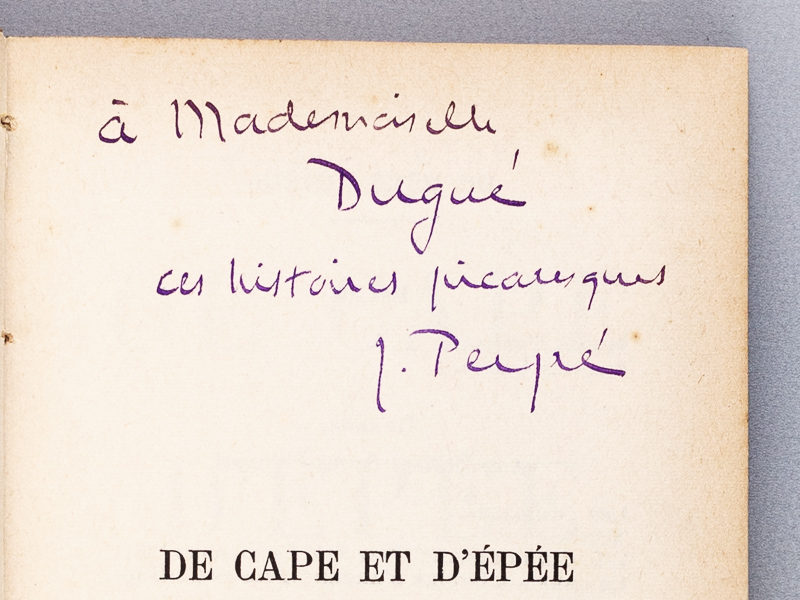 à Mademoiselle
Dugué
ces histoires picaresques
J. Peyré
DE CAPE ET D'ÉPÉE